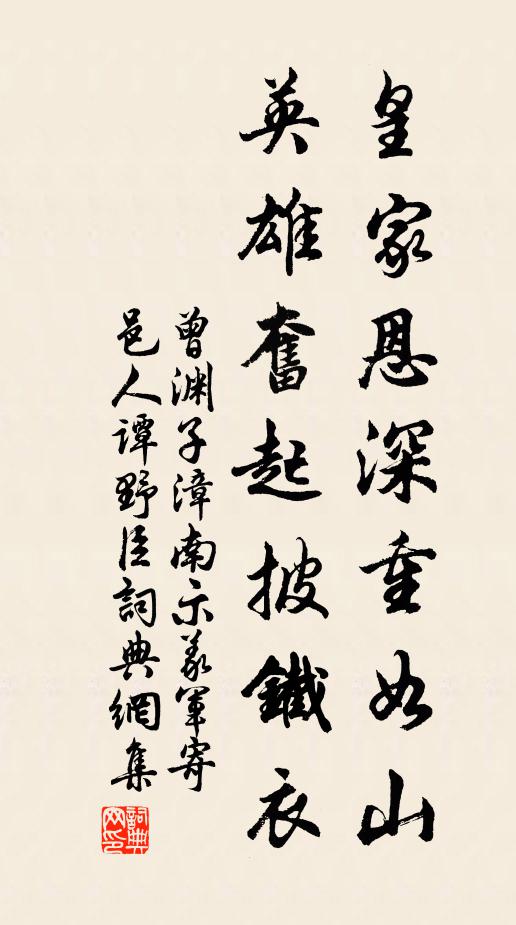 皇家恩深重如山
英雄奮起披鐵衣
曾渊子漳南示義軍寄
邑人谭野臣詞典網集
詞典